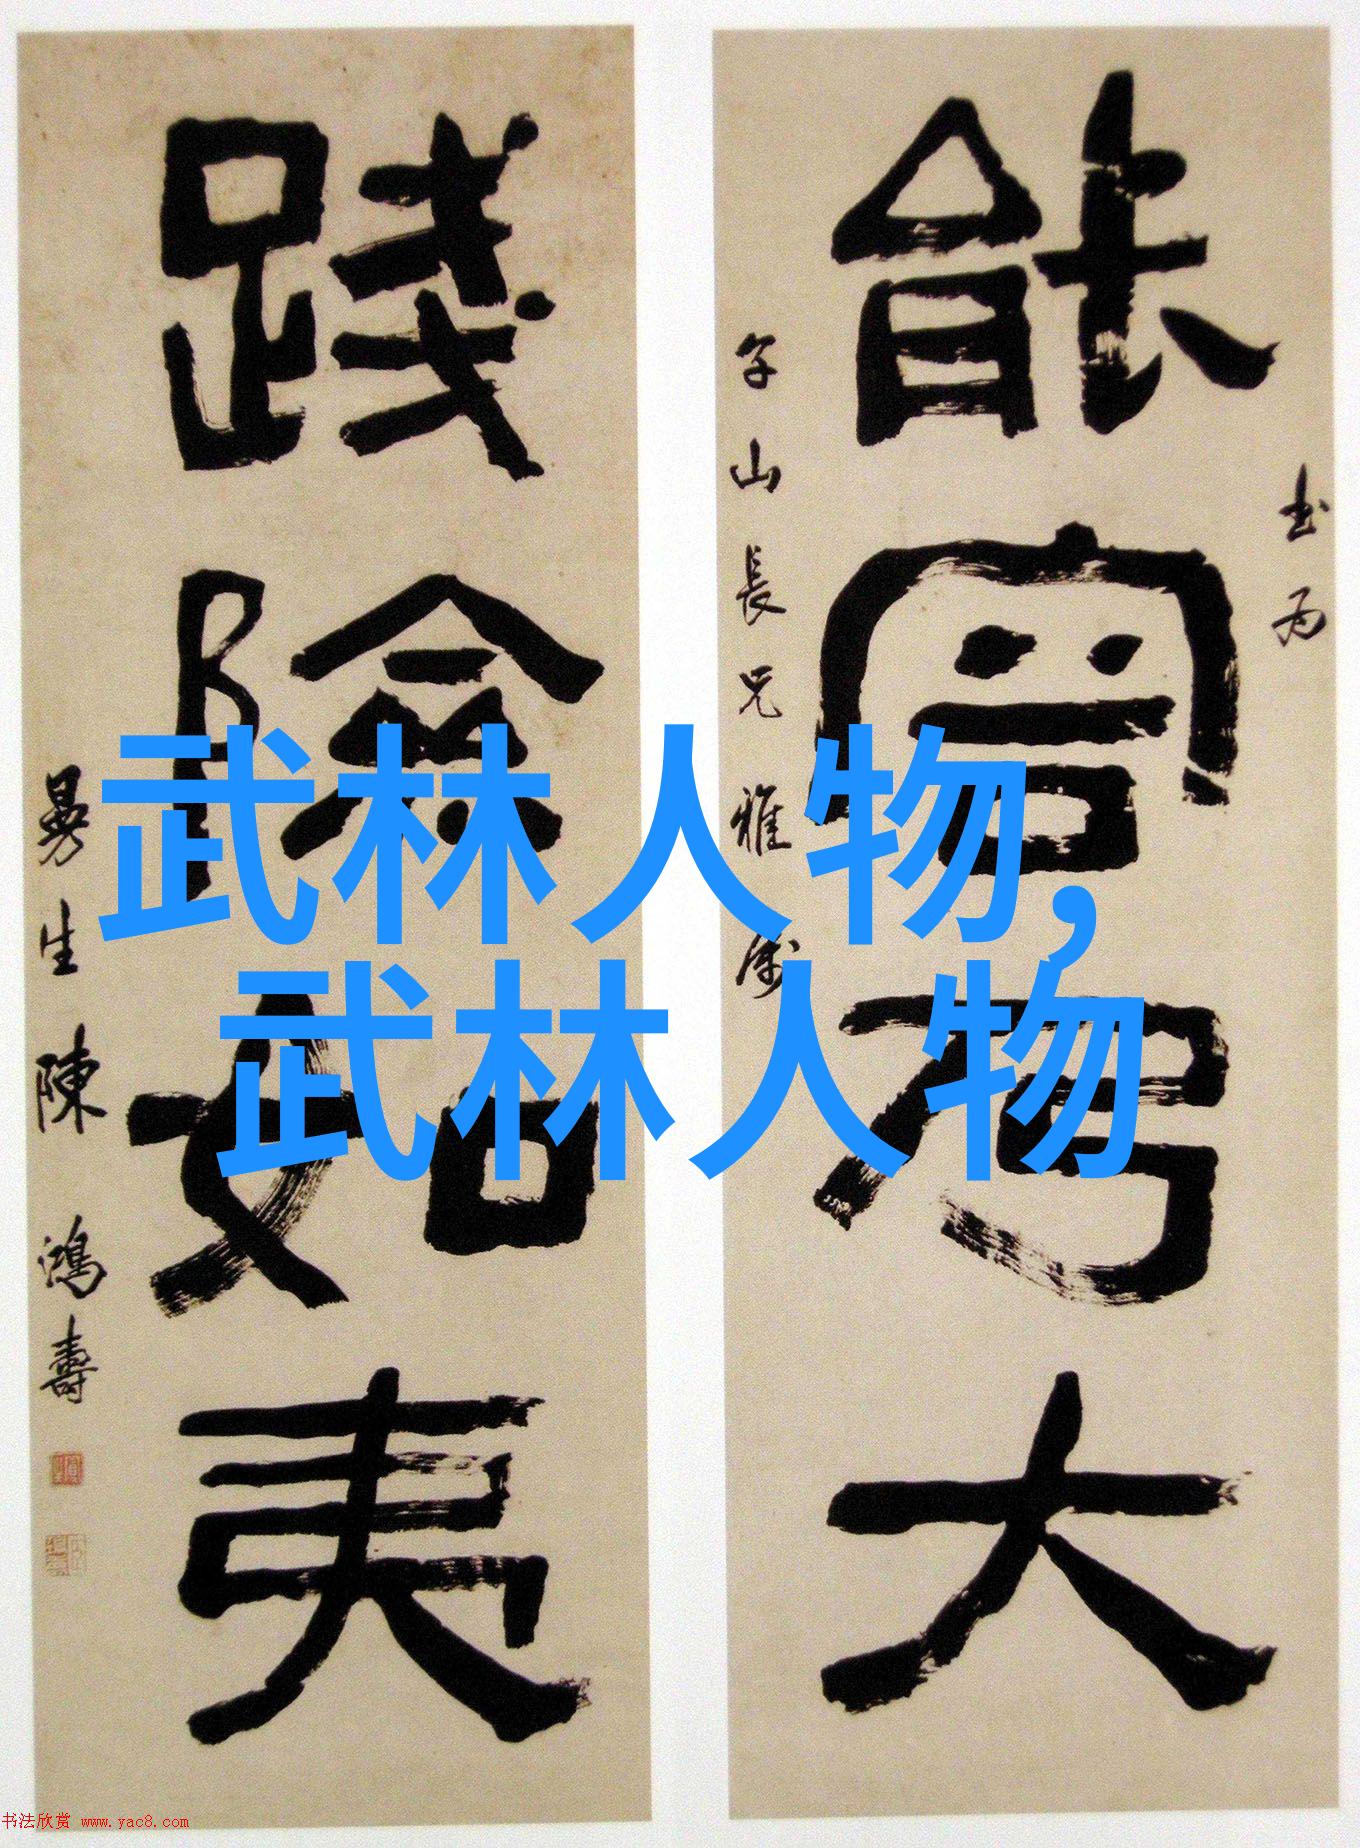 武林人物,
武林人物
書為
能容大
午山長兄雅
踐險如夷
曼生陳鴻壽
书法欣赏 www.yac8.com